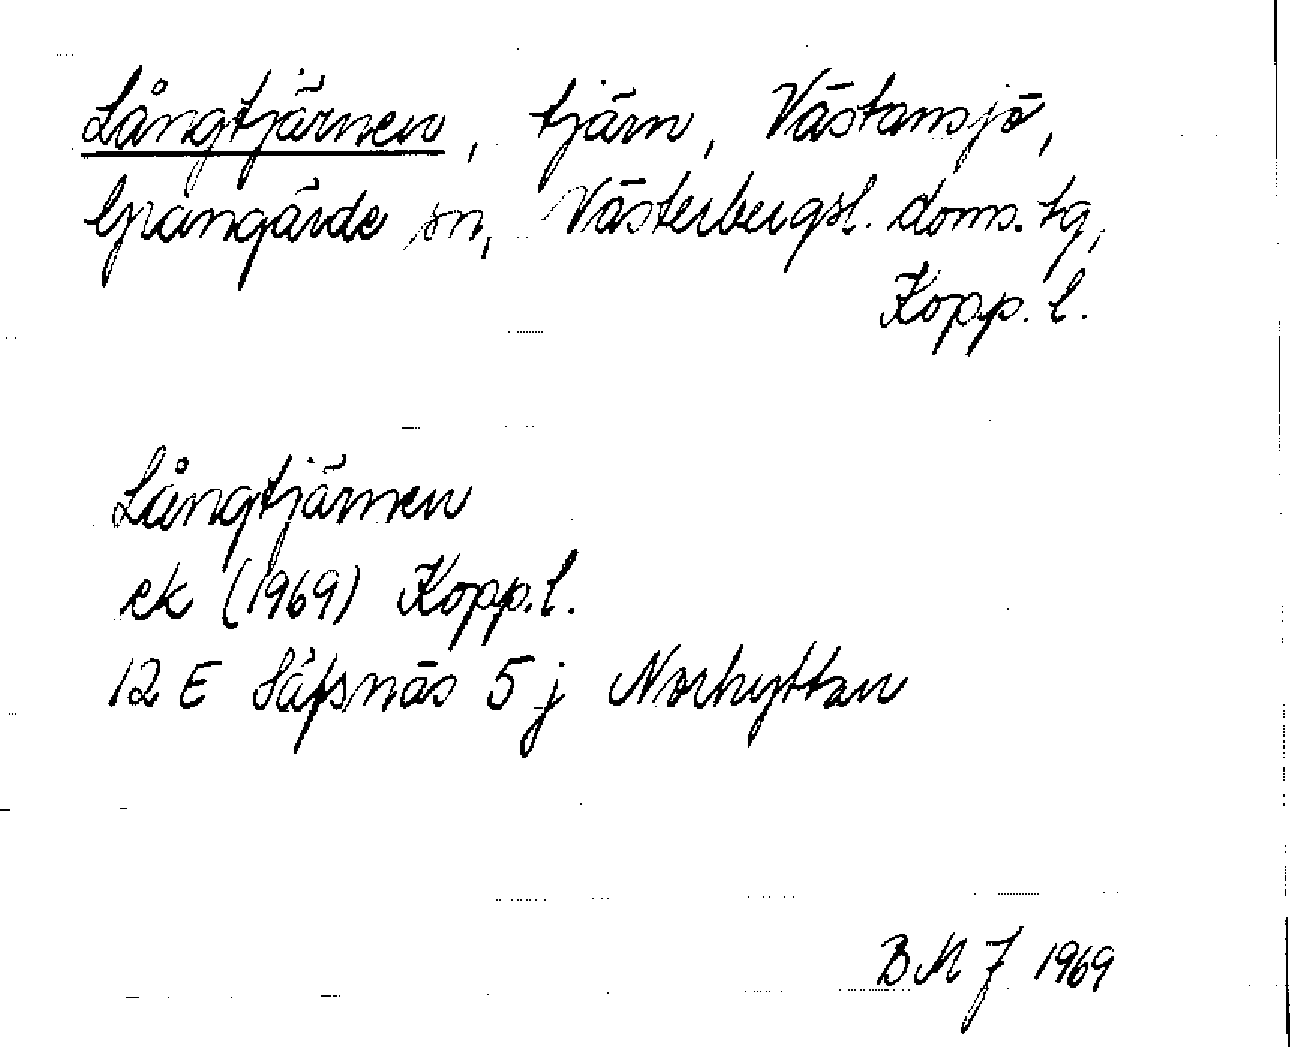 Långtjärnen, tjärn, Västansjö,
Grangärde sn, Västerbergsl. doms. tg,
Kopp. l.
Långtjärnen
ek (1969) Kopp. l.
12 E Säfsnäs 5 j Norhyttan
BMJ 1969